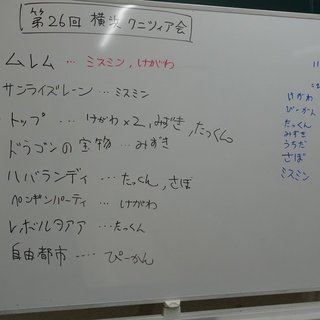 第26回 横浜 クニツィア会
ムレム … ミスミン, けがわ
サンライズレーン … ミスミン
トップ … けがわ×2, みずき, たっくん
ドラゴンの宝物 … みずき
ハバランディ … たっくん, さぼ
ペンギンパーティ … けがわ
レボルタアア … たっくん
自由都市 … ぴーかん
けがわ
ぴーかん
たっくん
みずき
うちだ
さぼ
ミスミン